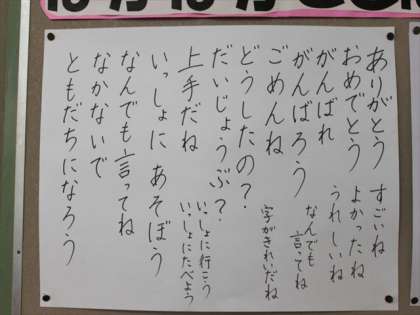 ありがとう
おめでとう
がんばれ
がんばろう
ごめんね
どうしたの?
だいじょうぶ?
上手だね
いっしょに あそぼう
なんでも言ってね
なかないで
ともだちになろう
すごいね
よかったね
うれしいね
なんでも
言ってね
字がきれいだね
いっしょに行こう
いっしょにたべよう